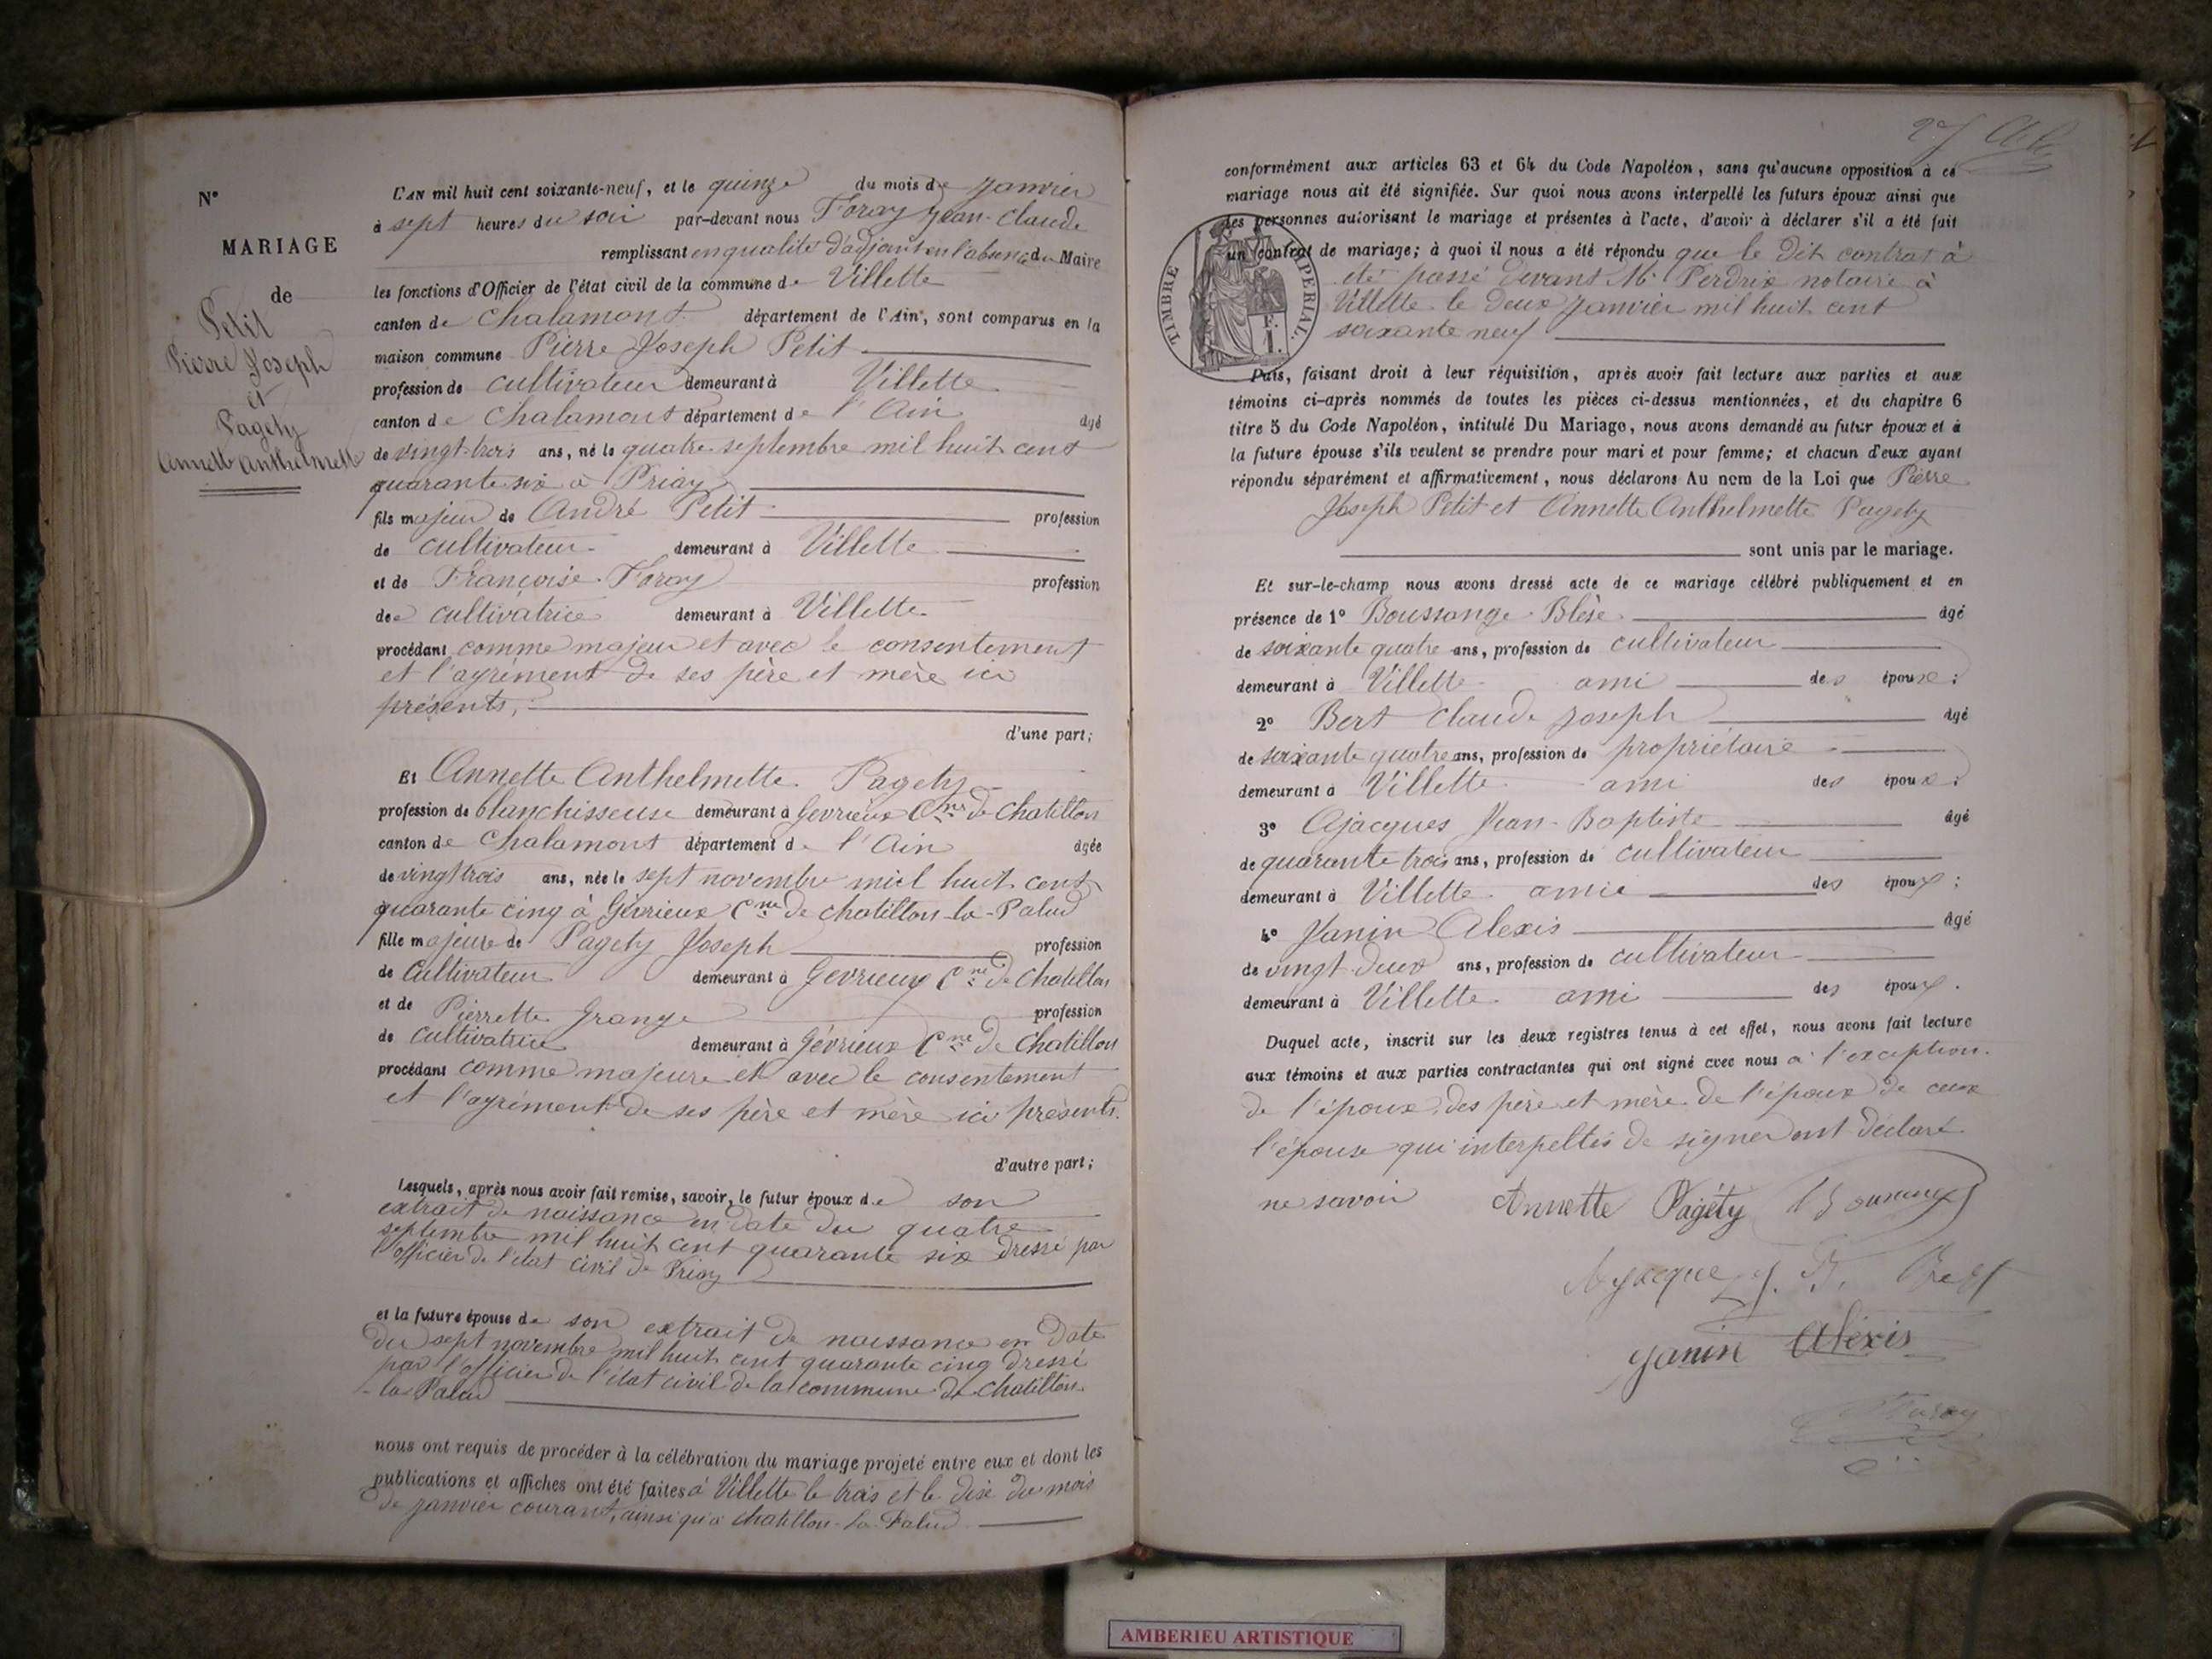 N°
MARIAGE
de
Petit
Pierre Joseph
et
Pagety
Annette Anthelmette
L'AN mil huit cent soixante-neuf, et le quinze du mois de Janvier
à sept heures du soir par-devant nous Foray Jean-Claude
remplissant en qualité d'adjoint en l'absence du Maire
les fonctions d'Officier de l'état civil de la commune de Villette
canton de Chalamont département de l'Ain, sont comparus en la
maison commune Pierre Joseph Petit
profession de cultivateur demeurant à Villette
canton de Chalamont département de l'Ain âgé
de vingt-trois ans, né le quatre septembre mil huit cent
quarante six à Priay
fils majeur de André Petit profession
de cultivateur demeurant à Villette
et de Françoise Foray profession
de cultivatrice demeurant à Villette
procédant comme majeur et avec le consentement
et l'agrément de ses père et mère ici
présents,
d'une part;
Et Annette Anthelmette Pagety
profession de blanchisseuse demeurant à Gevrieux Cne de Chatillon
canton de Chalamont département de l'Ain âgée
de vingt trois ans, née le sept novembre mil huit cent
quarante cinq à Gévrieux Cne de Chatillon-la-Palud
fille majeure de Pagety Joseph profession
de Cultivateur demeurant à Gevrieux Cne de Chatillon
et de Pierrette Grange profession
de cultivatrice demeurant à Gévrieux Cne de Chatillon
procédant comme majeure et avec le consentement
et l'agrément de ses père et mère ici présents.
d'autre part;
Lesquels, après nous avoir fait remise, savoir, le futur époux de son
extrait de naissance en date du quatre
septembre mil huit cent quarante six dressé par
l'officier de l'état civil de Priay
et la future épouse de son extrait de naissance en date
du sept novembre mil huit cent quarante cinq dressé
par l'officier de l'état civil de la commune de Chatillon
-la Palud
nous ont requis de procéder à la célébration du mariage projeté entre eux et dont les
publications et affiches ont été faites à Villette le trois et le dix du mois
de janvier courant, ainsi qu'à Chatillon-la-Palud
27
conformément aux articles 63 et 64 du Code Napoléon, sans qu'aucune opposition à ce
mariage nous ait été signifiée. Sur quoi nous avons interpellé les futurs époux ainsi que
les personnes autorisant le mariage et présentes à l'acte, d'avoir à déclarer s'il a été fait
un contrat de mariage; à quoi il nous a été répondu que le dit contrat à
été passé devant Me Perdrix notaire à
Villette le deux janvier mil huit cent
soixante neuf
TIMBRE IMPERIAL.
F.
1.
Puis, faisant droit à leur réquisition, après avoir fait lecture aux parties et aux
témoins ci-après nommés de toutes les pièces ci-dessus mentionnées, et du chapitre 6
titre 5 du Code Napoléon, intitulé Du Mariage, nous avons demandé au futur époux et à
la future épouse s'ils veulent se prendre pour mari et pour femme; et chacun d'eux ayant
répondu séparément et affirmativement, nous déclarons Au nom de la Loi que Pierre
Joseph Petit et Annette Anthelmette Pagety
sont unis par le mariage.
Et sur-le-champ nous avons dressé acte de ce mariage célébré publiquement et en
présence de 1° Boussange Blèse âgé
de soixante quatre ans, profession de cultivateur
demeurant à Villette ami des époux;
2° Bert Claude Joseph âgé
de soixante quatre ans, profession de propriétaire
demeurant à Villette ami des époux;
3° Ajacques Jean-Baptiste âgé
de quarante trois ans, profession de cultivateur
demeurant à Villette amie des époux;
4° Janin Alexis âgé
de vingt-deux ans, profession de cultivateur
demeurant à Villette ami des époux.
Duquel acte, inscrit sur les deux registres tenus à cet effet, nous avons fait lecture
aux témoins et aux parties contractantes qui ont signé avec nous à l'exception
de l'époux, des père et mère de l'époux de ceux
l'épouse qui interpellés de signer ont déclaré
ne savoir Annette Pagéty
Ajacque J. B. Bert
Janin Alexis
Foray
AMBERIEU ARTISTIQUE